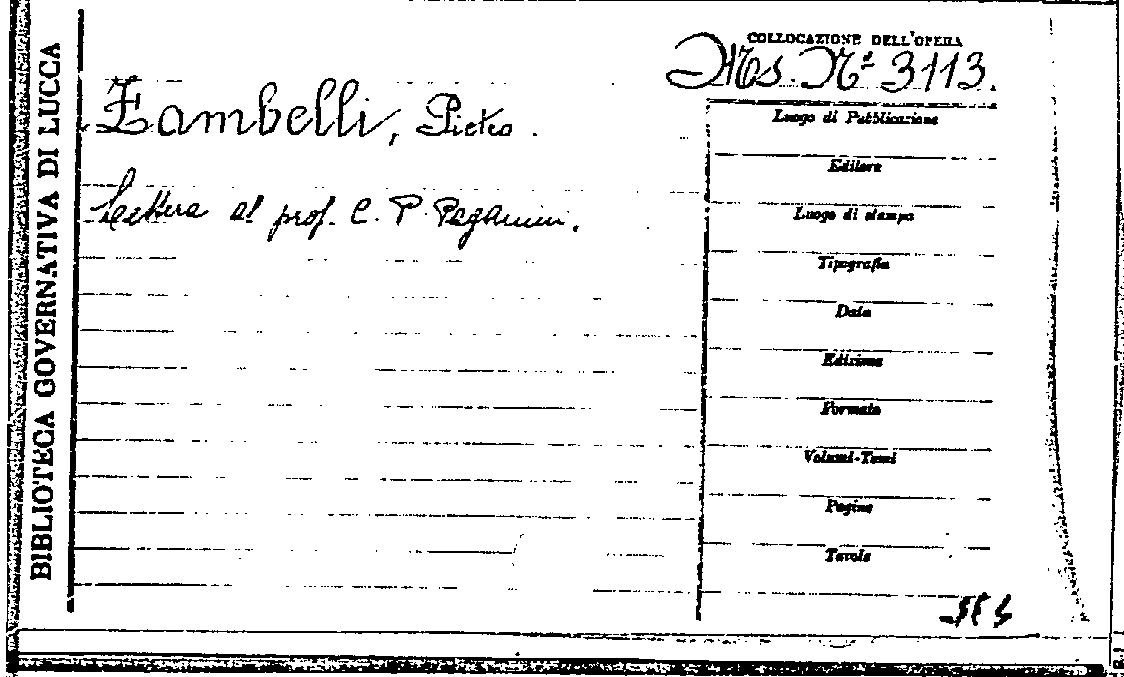 BIBLIOTECA GOVERNATIVA DI LUCCA
COLLOCAZIONE DELL'OPERA
Ms. N° 3113.
Zambelli, Pietro.
Lettera al prof. C. P. Paganini.
Luogo di Pubblicazione
Editore
Luogo di stampa
Tipografia
Data
Edizione
Formato
Volumi-Tomi
Pagine
Tavole